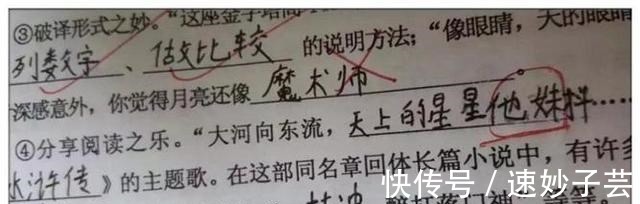 ③破译形式之妙。“这座金字塔高
列数字、做比较的说明方法；“像眼睛，天的眼睛
深感意外，你觉得月亮还像魔术师。
④分享阅读之乐。“大河向东流，天上的星星他妹抖……
水浒传》的主题歌。在这部同名章回体长篇小说中，有许多
醉打蒋门神
快传号／速妙子芸